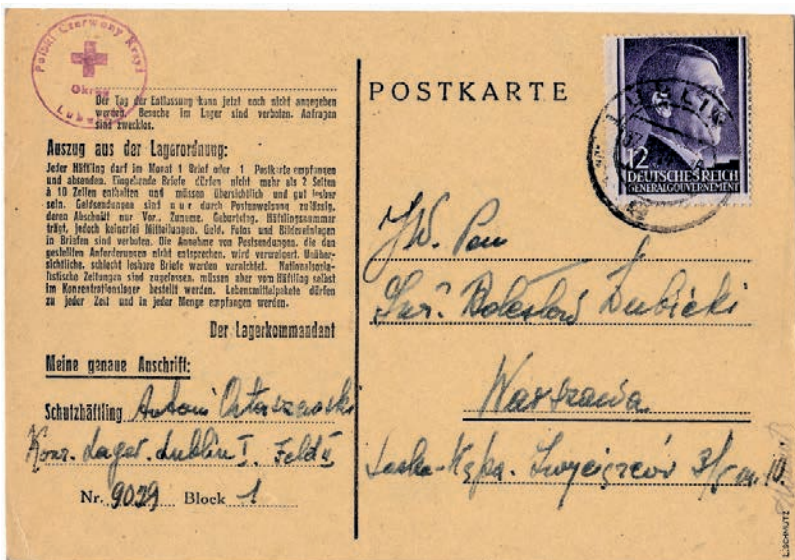 Polski Czerwony Krzyż
Okręg
Der Tag der Entlassung kann jetzt noch nicht angegeben
werden. Besuche im Lager sind verboten. Anfragen
sind zwecklos.
Auszug aus der Lagerordnung:
Jeder Häftling darf im Monat 1 Brief oder 1 Postkarte empfangen
und absenden. Eingehende Briefe dürfen nicht mehr als 2 Seiten
à 10 Zeilen enthalten und müssen übersichtlich und gut lesbar
sein. Geldsendungen sind nur durch Postanweisung zulässig,
deren Abschnitt nur Vor-, Zuname, Geburtstag, Häftlingsnummer
trägt, jedoch keinerlei Mitteilungen. Geld, Fotos und Bildereinlagen
in Briefen sind verboten. Die Annahme von Postsendungen, die den
gestellten Anforderungen nicht entsprechen, wird verweigert. Unüber-
sichtliche, schlecht lesbare Briefe werden vernichtet. Nationalsozia-
listische Zeitungen sind zugelassen, müssen aber vom Häftling selbst
im Konzentrationslager bestellt werden. Lebensmittelpakete dürfen
zu jeder Zeit und in jeder Menge empfangen werden.
Der Lagerkommandant
Meine genaue Anschrift:
Schutzhäftling Antoni
Konz. Lager. Lublin I. Feld II
Nr. 9029 Block 1
POSTKARTE
LUBLIN
12
DEUTSCHES REICH
GENERALGOUVERNEMENT
JW. Pan
Bolesław Dubicki
Warszawa
Saska-Kępa. Zwycięzców m. 10
L. SCHMUTZ